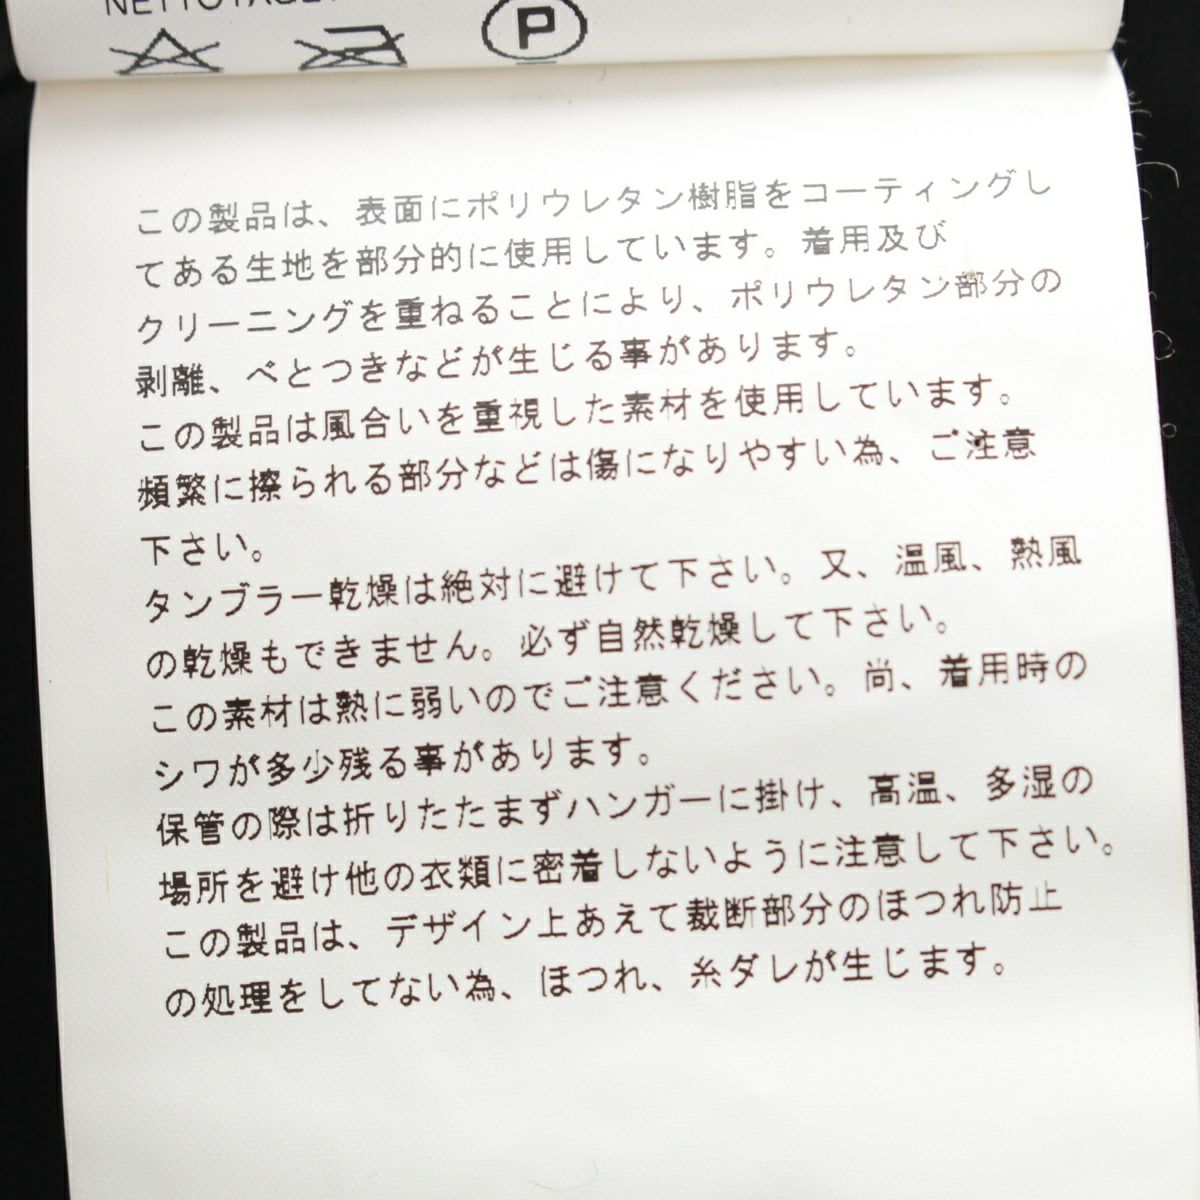 P
この製品は、表面にポリウレタン樹脂をコーティングし
てある生地を部分的に使用しています。着用及び
クリーニングを重ねることにより、ポリウレタン部分の
剥離、べとつきなどが生じる事があります。
この製品は風合いを重視した素材を使用しています。
頻繁に擦られる部分などは傷になりやすい為、ご注意
下さい。
タンブラー乾燥は絶対に避けて下さい。又、温風、熱風
の乾燥もできません。必ず自然乾燥して下さい。
この素材は熱に弱いのでご注意ください。尚、着用時の
シワが多少残る事があります。
保管の際は折りたたまずハンガーに掛け、高温、多湿の
場所を避け他の衣類に密着しないように注意して下さい。
この製品は、デザイン上あえて裁断部分のほつれ防止
の処理をしてない為、ほつれ、糸ダレが生じます。